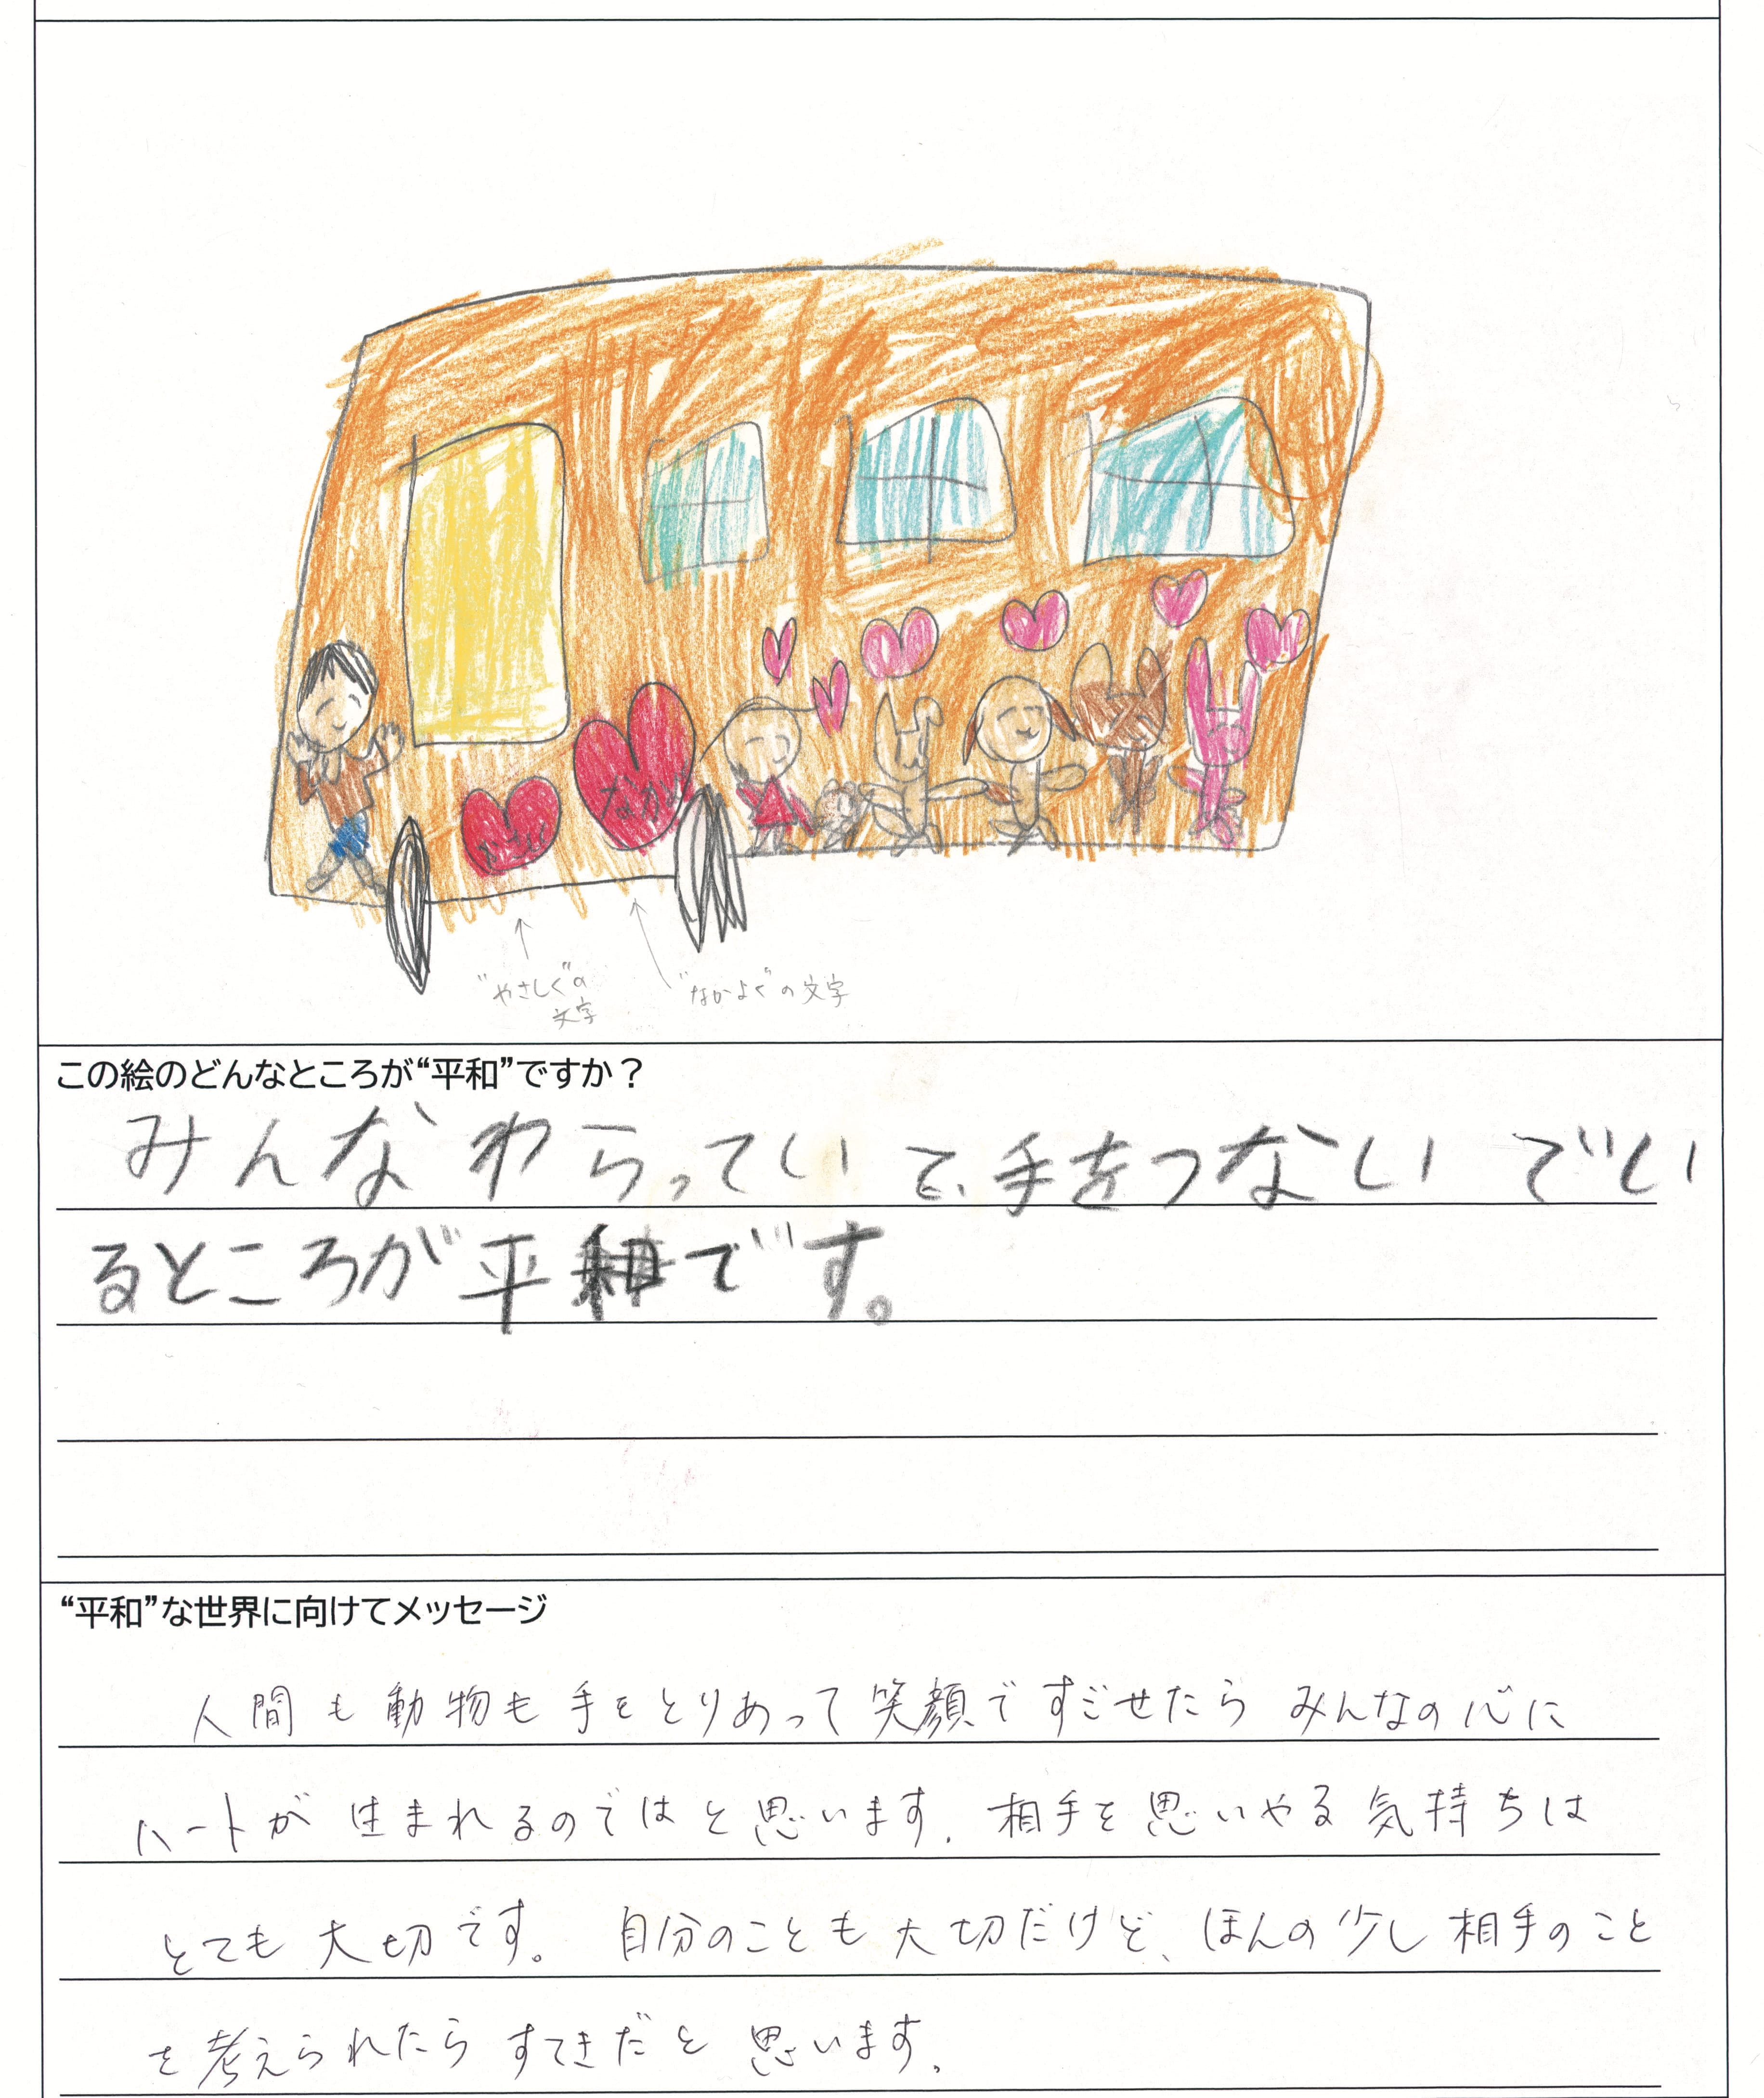 なかよ
"やさしく"の
文字
"なかよく"の文字
この絵のどんなところが“平和”ですか？
みんなわらっていて、手をつないでい
るところが平和です。
“平和”な世界に向けてメッセージ
人間も動物も手をとりあって笑顔ですごせたら みんなの心に
ハートが生まれるのではと思います。相手を思いやる気持ちは
とても大切です。 自分のことも大切だけど、ほんの少し相手のこと
を考えられたら すてきだと思います。